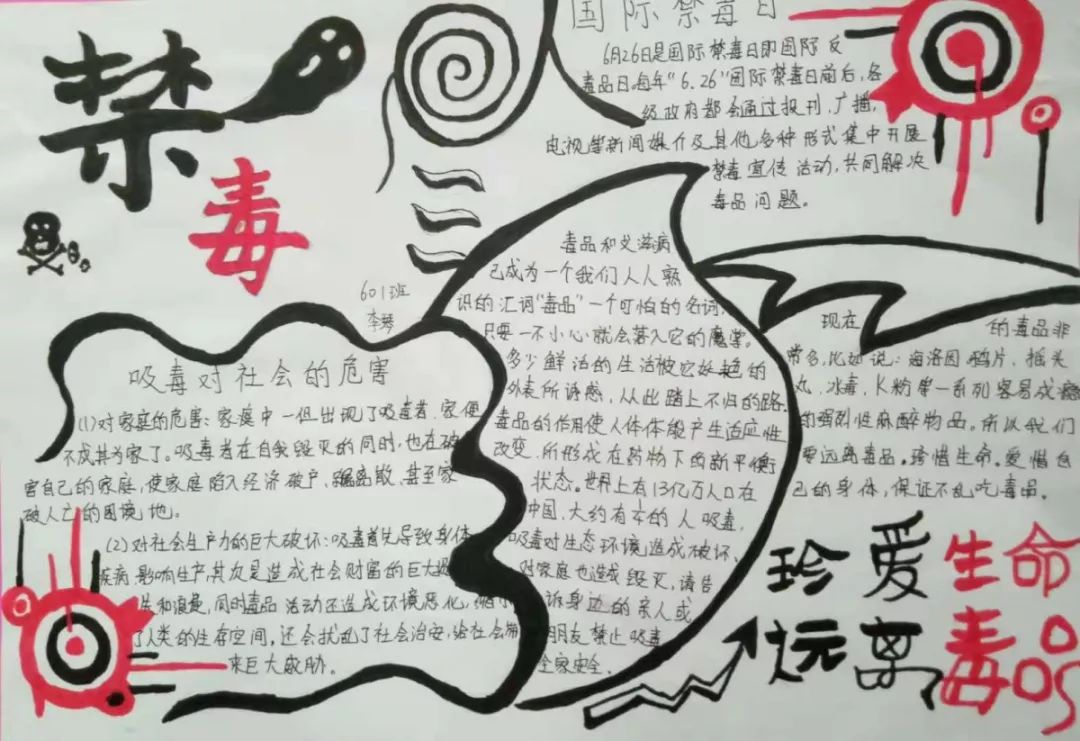 禁
毒
国际禁毒日
6月26日是国际禁毒日即国际反
毒品日.每年"6.26"国际禁毒日前后,各
级政府都会通过报刊.广播,
电视等新闻媒介及其他多种形式集中开展
禁毒宣传活动,共同解决
毒品问题。
601班
李琴
吸毒对社会的危害
(1)对家庭的危害:家庭中一但出现了吸毒者.家便
不成其为家了。吸毒者在自我毁灭的同时,也在破
害自己的家庭,使家庭陷入经济破产、离散、甚至家
破人亡的困境地。
(2)对社会生产力的巨大破坏:吸毒首先导致身体
疾病影响生产,其次是造成社会财富的巨大损
失和浪费,同时毒品活动还造成环境恶化,缩小
了人类的生存空间,还会扰乱了社会治安,给社会带
来巨大威胁。
毒品和艾滋病
己成为一个我们人人熟
识的汇词"毒品"一个可怕的名词,
只要一不小心就会落入它的魔掌。
多少鲜活的生活被它的
外表所诱惑,从此踏上不归的路.
毒品的作用使人体体能产生适应性
改变.所形成在药物下的新平衡
状态。世界上有13亿万人口在
中国,大约有的人吸毒,
吸毒对生态环境造成破坏,
对家庭也造成毁灭,请告
诉身边的亲人或
朋友禁止吸毒
全家安全.
现在的毒品非
常多,比如说:海洛因.鸦片、摇头
丸、冰毒、K粉等一系列容易成瘾
的强烈性麻醉物品。所以我们
要远离毒品。珍惜生命。爱惜自
己的身体,保证不乱吃毒品。
珍爱生命
远离毒品